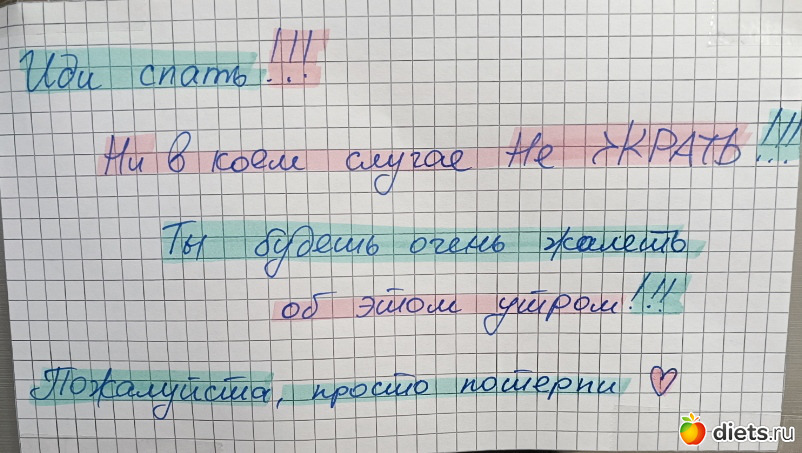 Иди спать!!!
Ни в коем случае не ЖРАТЬ!!!
Ты будешь очень жалеть
об этом утром!!!
Пожалуйста, просто потерпи ♡
diets.ru